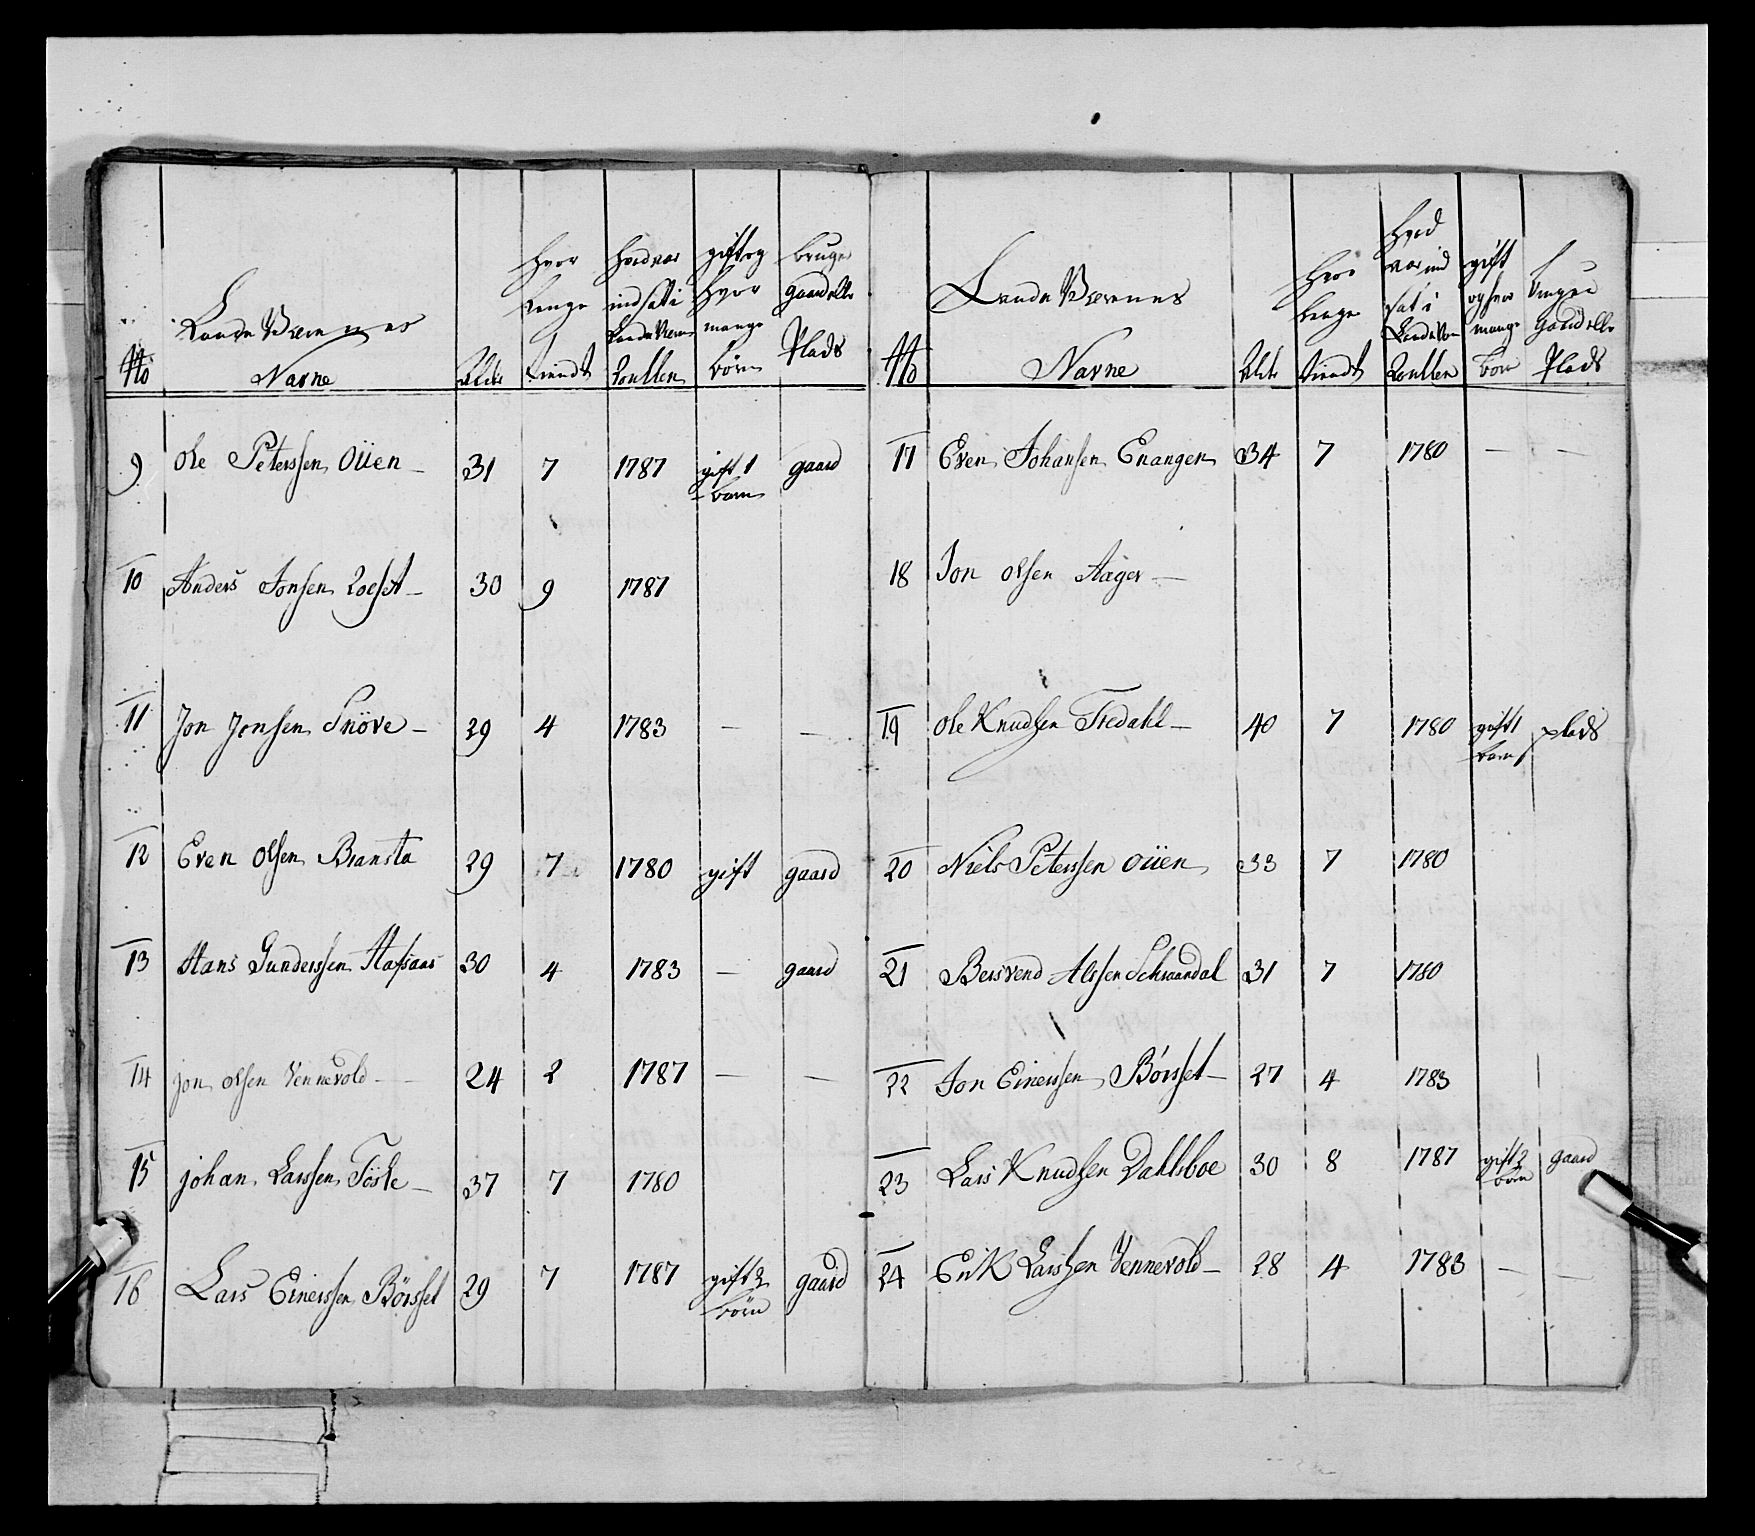 No Lande Værnes Navne Alder hvor lenge tiendt hvad aar indsatt i Lande Værns Roullen gift og hvor mange børn bruger gaard eller Plads
9 Ole Peterssen Oüen 31 7 1787 gift 1 barn gaard
10 Anders Jonsen Roeset 30 9 1787
11 Jon Jonsen Snöve 29 4 1783 — —
12 Even Olsen Bransta 29 7 1780 gift gaard
13 Hans Gunderssen Hafsaas 30 4 1783 — gaard
14 jon olsen Vennevold 24 2 1787 — —
15 johan Larssen Töste 37 7 1780
16 Lars Einerssen Börset 29 7 1787 gift 2 börn gaard
No Lande Værnes Navne Alder hvor lenge tiendt hvad aar ind sat i Lande Værn Roullen gift og hvor mange born bruger Gaard eller Plads
17 Even Johansen Enangen 34 7 1780 — —
18 Jon olsen Aager
19 Ole Knudsen Tredahl 40 7 1780 gift 1 barn plads
20 Niels Peterssen Oüen 33 7 1780
21 Bersvend Alssen Schaandal 31 7 1780
22 Jon Einerssen Börset 27 4 1783
23 Lars Knudsen Dahlsboe 30 8 1787 gift 2 born gaard
24 Erik Larssen Vennevold 28 4 1783 — —